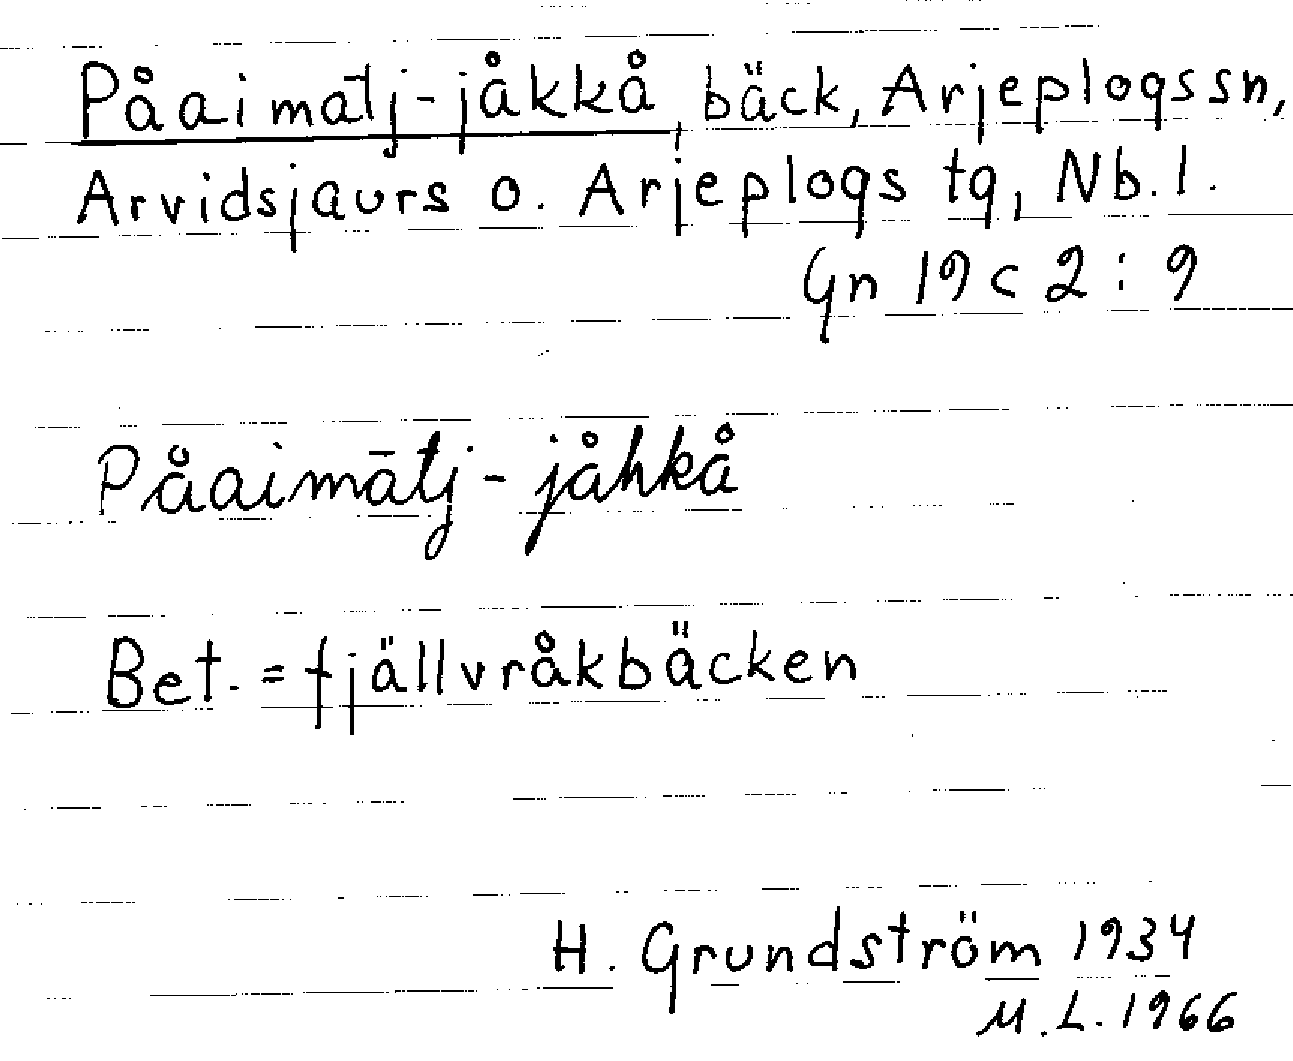 Påaimātj-jåkkå, bäck, Arjeplogs sn,
Arvidsjaurs o. Arjeplogs tg, Nb. l.
Gn 19 c 2 : 9
Påaimātj-jåhkå
Bet. = fjällvråkbäcken
H. Grundström 1934
M.L. 1966